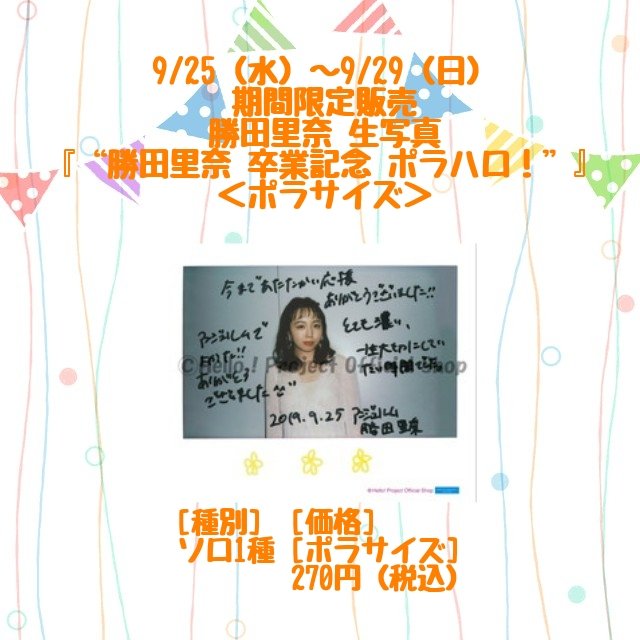 9/25（水）～9/29（日）
期間限定販売
勝田里奈 生写真
『“勝田里奈 卒業記念 ポラハロ！”』
＜ポラサイズ＞
今まであたたかい応援
ありがとうございました!!
アンジュルムで
よかった!!
ありがとう
ございました
とても濃い、
一生大切にしたい
時間でした。
2019.9.25
アンジュルム
勝田里奈
©Hello! Project Official Shop
©Hello! Project Official Shop
[種別] [価格]
ソロ1種 [ポラサイズ]
270円（税込）